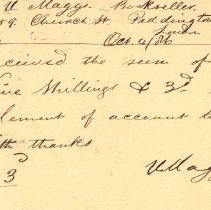 U. Maggs. Bookseller.
59. Church St. Paddington
London
Oct. 4/86
ceived the sum of
ive Shillings & 3d
lement of account to
th thanks
d
3
U Mag